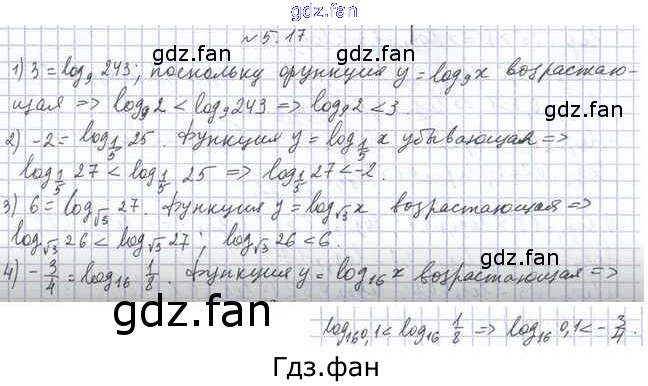 gdz.fan
№5.17
gdz.fan
gdz.fan
1) 3 = log₉ 243; поскольку функция y = log₉ x возрастаю-
щая => log₉ 2 < log₉ 243 => log₉ 2 < 3.
2) -2 = log_{1/5} 25. Функция y = log_{1/5} x убывающая =>
log_{1/5} 27 < log_{1/5} 25 => log_{1/5} 27 < -2.
3) 6 = log_{√3} 27. Функция y = log_{√3} x возрастающая =>
log_{√3} 26 < log_{√3} 27; log_{√3} 26 < 6.
gdz.fan
4) -3/4 = log₁₆ 1/8. Функция y = log₁₆ x возрастающая =>
gdz.fan
log₁₆ 0,1 < log₁₆ 1/8 => log₁₆ 0,1 < -3/4.
Гдз.фан